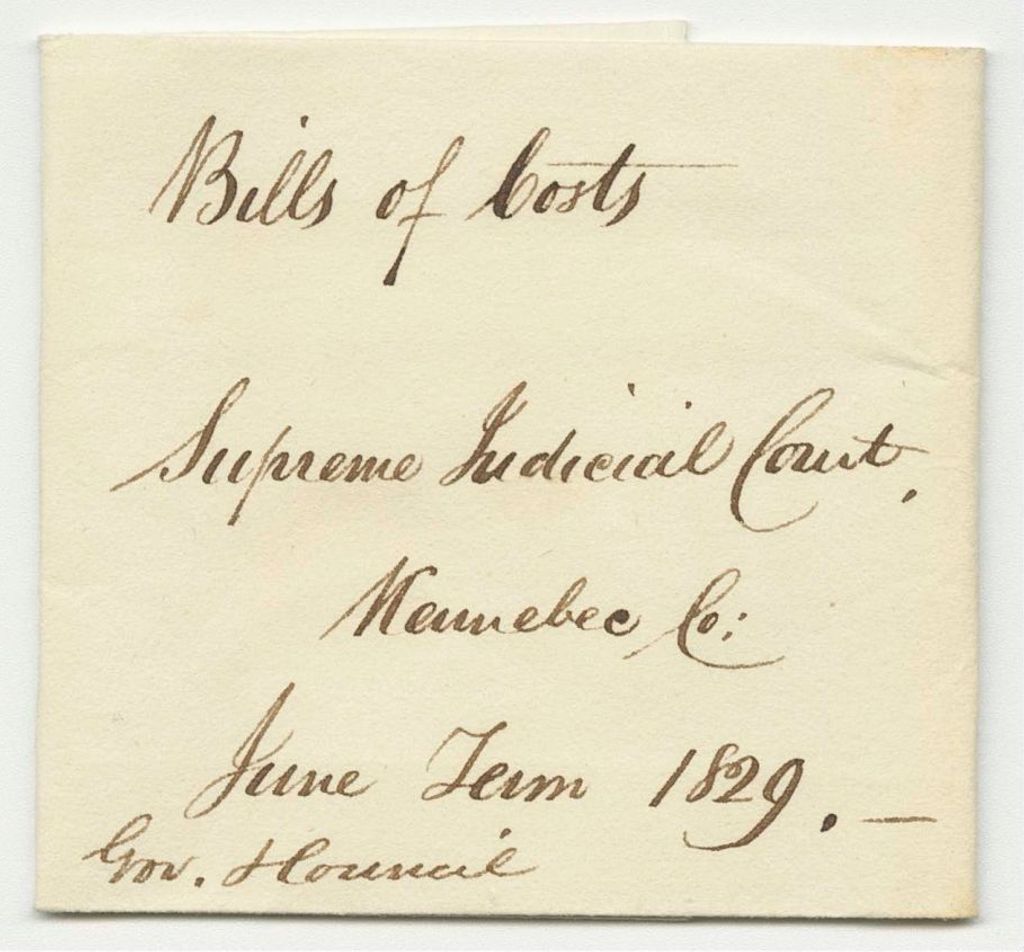 Bills of Costs
Supreme Judicial Court,
Kennebec Co:
June Term 1829. —
Gov. & Council